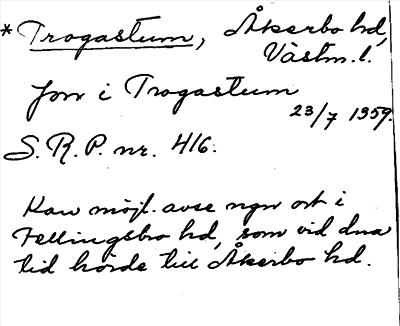 * Trogastum, Åkerbo hd,
Västm. l.
Jon i Trogastum
23/7 1359.
S.R.P. nr. 416.
Kan möjl. avse ngn ort i
Fellingsbro hd, som vid dna
tid hörde till Åkerbo hd.